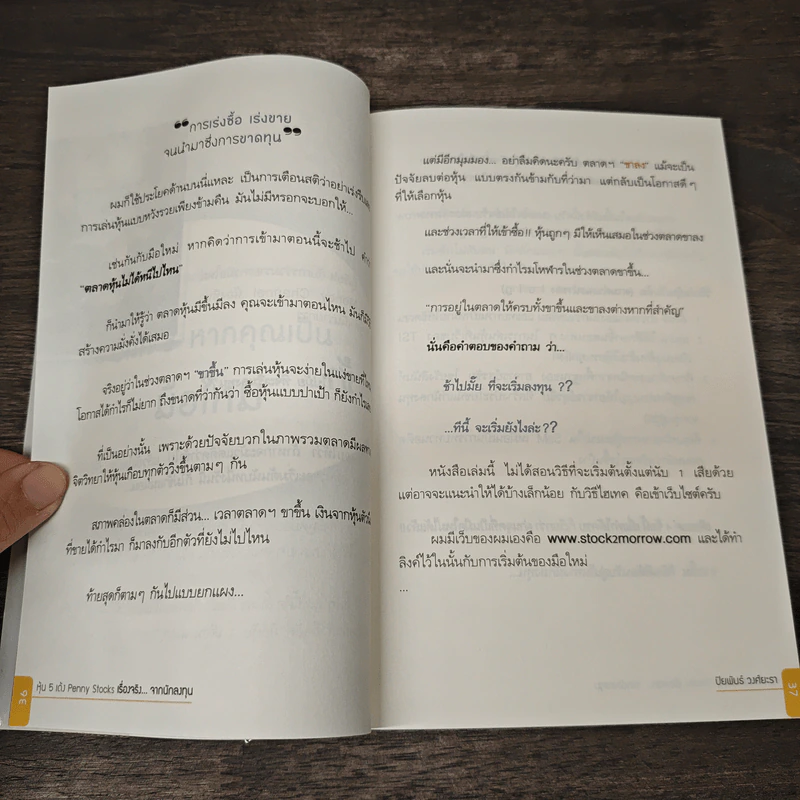 "การเร่งซื้อ เร่งขาย
จนนำมาซึ่งการขาดทุน"
ผมก็ใช้ประโยคด้านบนนี่แหละ เป็นการเตือนสติว่าอย่าเร่งรีบ
การเล่นหุ้นแบบหวังรวยเพียงข้ามคืน มันไม่มีหรอกจะบอกให้...
เช่นกันกับมือใหม่ หากคิดว่าการเข้ามาตอนนี้จะช้าไป
"ตลาดหุ้นไม่ได้หนีไปไหน"
ก็นำมาให้รู้ว่า ตลาดหุ้นมีขึ้นมีลง คุณจะเข้ามาตอนไหน มันก็
สร้างความมั่งคั่งได้เสมอ
จริงอยู่ว่าในช่วงตลาดฯ "ขาขึ้น" การเล่นหุ้นจะง่ายในแง่ขายที่ไหน
โอกาสได้กำไรก็ไม่ยาก ถึงขนาดที่ว่ากันว่า ซื้อหุ้นแบบปาเป้า ก็ยังกำไร
ที่เป็นอย่างนั้น เพราะด้วยปัจจัยบวกในภาพรวมตลาดมีผล
จิตวิทยาให้หุ้นเกือบทุกตัววิ่งขึ้นตามๆ กัน
สภาพคล่องในตลาดก็มีส่วน... เวลาตลาดฯ ขาขึ้น เงินจากหุ้นตัว
ที่ขายได้กำไรมา ก็มาลงกับอีกตัวที่ยังไม่ไปไหน
ท้ายสุดก็ตามๆ กันไปแบบยกแผง...
หุ้น 5 เด้ง Penny Stocks เรื่องจริง... จากนักลงทุน
36
แต่มีอีกมุมมอง... อย่าลืมคิดนะครับ ตลาดฯ "ขาลง" แม้จะเป็น
ปัจจัยลบต่อหุ้น แบบตรงกันข้ามกับที่ว่ามา แต่กลับเป็นโอกาสดีๆ
ที่ให้เลือกหุ้น
และช่วงเวลาที่ให้เข้าซื้อ!! หุ้นถูกๆ มีให้เห็นเสมอในช่วงตลาดขาลง
และนั่นจะนำมาซึ่งกำไรมโหฬารในช่วงตลาดขาขึ้น...
"การอยู่ในตลาดให้ครบทั้งขาขึ้นและขาลงต่างหากที่สำคัญ"
นั่นคือคำตอบของคำถาม ว่า...
ช้าไปมั้ย ที่จะเริ่มลงทุน ??
...ทีนี้ จะเริ่มยังไงล่ะ??
หนังสือเล่มนี้ ไม่ได้สอนวิธีที่จะเริ่มต้นตั้งแต่นับ 1 เสียด้วย
แต่อาจจะแนะนำให้ได้บ้างเล็กน้อย กับวิธีไฮเทค คือเข้าเว็บไซต์ครับ
ผมมีเว็บของผมเองคือ www.stock2morrow.com และได้ทำ
ลิงค์ไว้ในนั้นกับการเริ่มต้นของมือใหม่
...
ปิยพันธ์ วงศ์ยะรา
37